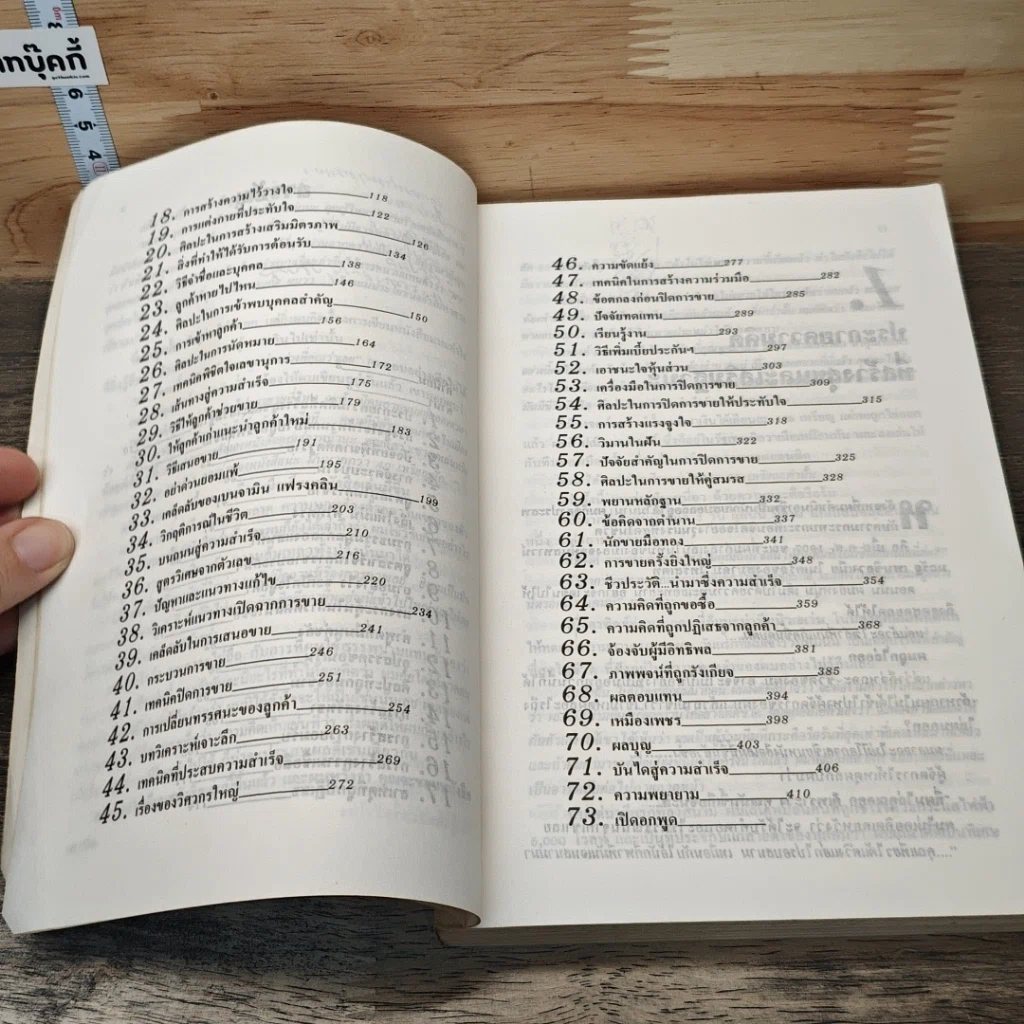 ทบุ๊คกี้
6
5
4
18. การสร้างความไว้วางใจ 118
19. การแต่งกายที่ประทับใจ 122
20. ศิลปะในการสร้างเสริมมิตรภาพ 126
21. สิ่งที่ทำให้ได้รับการต้อนรับ 134
22. วิธีจำชื่อและบุคคล 138
23. ลูกค้าหายไปไหน 146
24. ศิลปะในการเข้าพบบุคคลสำคัญ 150
25. การเข้าหาลูกค้า 156
26. ศิลปะในการนัดหมาย 164
27. เทคนิคพิชิตใจเลขานุการ 172
28. เส้นทางสู่ความสำเร็จ 175
29. วิธีให้ลูกค้าช่วยขาย 179
30. ให้ลูกค้าเก่าแนะนำลูกค้าใหม่ 183
31. วิธีเสนอขาย 191
32. อย่าด่วนยอมแพ้ 195
33. เคล็ดลับของเบนจามิน แฟรงคลิน 199
34. วิกฤติการณ์ในชีวิต 203
35. บนถนนสู่ความสำเร็จ 210
36. สูตรวิเศษจากตัวเลข 216
37. ปัญหาและแนวทางแก้ไข 220
38. วิเคราะห์แนวทางเปิดฉากการขาย 234
39. เคล็ดลับในการเสนอขาย 241
40. กระบวนการขาย 246
41. เทคนิคปิดการขาย 251
42. การเปลี่ยนทรรศนะของลูกค้า 254
43. บทวิเคราะห์เจาะลึก 263
44. เทคนิคที่ประสบความสำเร็จ 269
45. เรื่องของวิศวกรใหญ่ 272
46. ความขัดแย้ง 277
47. เทคนิคในการสร้างความร่วมมือ 282
48. ข้อตกลงก่อนปิดการขาย 285
49. ปัจจัยทดแทน 289
50. เรียนรู้งาน 293
51. วิธีเพิ่มเบี้ยประกันฯ 297
52. เอาชนะใจหุ้นส่วน 303
53. เครื่องมือในการปิดการขาย 309
54. ศิลปะในการปิดการขายให้ประทับใจ 315
55. การสร้างแรงจูงใจ 318
56. วิมานในฝัน 322
57. ปัจจัยสำคัญในการปิดการขาย 325
58. ศิลปะในการขายให้คู่สมรส 328
59. พยานหลักฐาน 332
60. ข้อคิดจากตำนาน 337
61. นักขายมือทอง 341
62. การขายครั้งยิ่งใหญ่ 348
63. ชีวประวัติ...นำมาซึ่งความสำเร็จ 354
64. ความคิดที่ถูกขอซื้อ 359
65. ความคิดที่ถูกปฏิเสธจากลูกค้า 368
66. จ้องจับผู้มีอิทธิพล 381
67. ภาพพจน์ที่ถูกรังเกียจ 385
68. ผลตอบแทน 394
69. เหมืองเพชร 398
70. ผลบุญ 403
71. บันไดสู่ความสำเร็จ 406
72. ความพยายาม 410
73. เปิดอกพูด